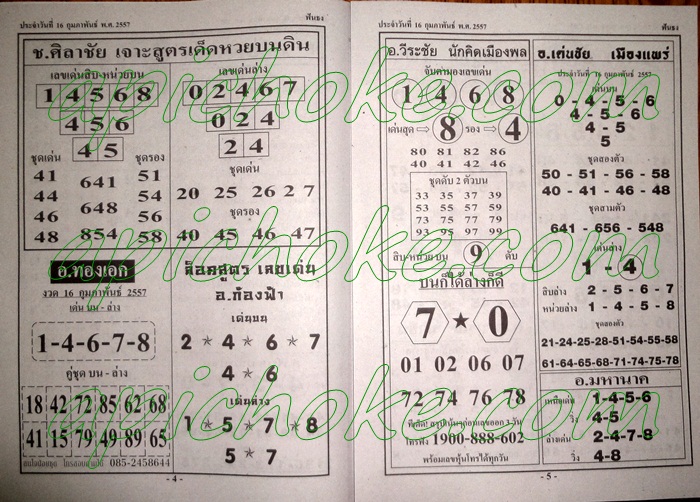 ประจำวันที่ 16 กุมภาพันธ์ พ.ศ. 2557 ฟันธง
ช.ศิลาชัย เจาะสูตรเด็ดหวยบนดิน
เลขเด่นสิบ-หน่วยบน
1 4 5 6 8
4 5 6
4 5
ชุดเด่น ชุดรอง
41 641 51
44 54
46 648 56
48 854 58
เลขเด่นล่าง
0 2 4 6 7
0 2 4
2 4
ชุดเด่น
20 25 26 2 7
ชุดรอง
40 45 46 47
อ.ทองเอก
งวด 16 กุมภาพันธ์ 2557
เด่น บน - ล่าง
1-4-6-7-8
คู่ชุด บน - ล่าง
18 42 72 85 62 68
41 15 79 49 89 65
085-2458644
ล็อกสูตร เลขเด่น
อ.ก้องฟ้า
เด่นบน
2 * 4 * 6 * 7
4 * 6
เด่นล่าง
1 * 5 * 7 * 8
5 * 7
- 4 -
ประจำวันที่ 16 กุมภาพันธ์ พ.ศ. 2557 ฟันธง
อ.วีระชัย นักคิดเมืองพล
จับตามองเลขเด่น
1 4 6 8
เด่นสุด ⇨ 8 รอง ⇨ 4
80 81 82 86
40 41 42 46
ชุดดับ 2 ตัวบน
33 35 37 39
53 55 57 59
73 75 77 79
93 95 97 99
สิบ-หน่วย บน 9 ดับ
บนก็ได้ล่างก็ดี
7 ★ 0
01 02 06 07
72 74 76 78
โทรฟัง 1900-888-602
พร้อมเลขหุ้นโทรได้ทุกวัน
อ.เด่นชัย เมืองแพร่
ประจำวันที่ 16 กุมภาพันธ์ 2557
เด่นบน
0 - 4 - 5 - 6
4 - 5 - 6
4 - 5
5
ชุดสองตัว
50 - 51 - 56 - 58
40 - 41 - 46 - 48
ชุดสามตัว
641 - 656 - 548
เด่นล่าง
1 - 4
สิบล่าง 2 - 5 - 6 - 7
หน่วยล่าง 1 - 4 - 5 - 8
ชุดสองตัว
21-24-25-28-51-54-55-58
61-64-65-68-71-74-75-78
อ.มหานาค
เหนือเด่น 1-4-5-6
วิ่ง 4-5
ล่างเด่น 2-4-7-8
วิ่ง 4-8
- 5 -
apichoke.com
apichoke.com
apichoke.com
apichoke.com